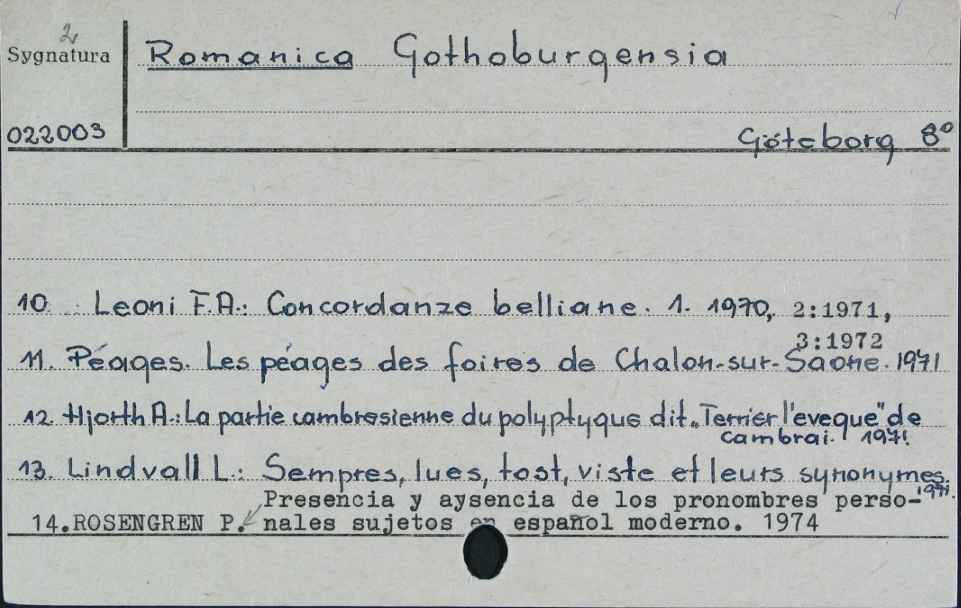 2
Sygnatura
Romanica Gothoburgensia
022003
Göteborg 8°
10. Leoni F.A.: Concordanze belliane. 1. 1970, 2:1971,
3:1972
11. Péages. Les péages des foires de Chalon-sur-Saone. 1971
12. Hjorth A.: La partie cambresienne du polyptyque dit „Terrier l'eveque" de
Cambrai. 1971.
13. Lindvall L.: Sempres, lues, tost, viste et leurs synonymes.
1971.
Presencia y aysencia de los pronombres perso-
14. ROSENGREN P. nales sujetos en español moderno. 1974